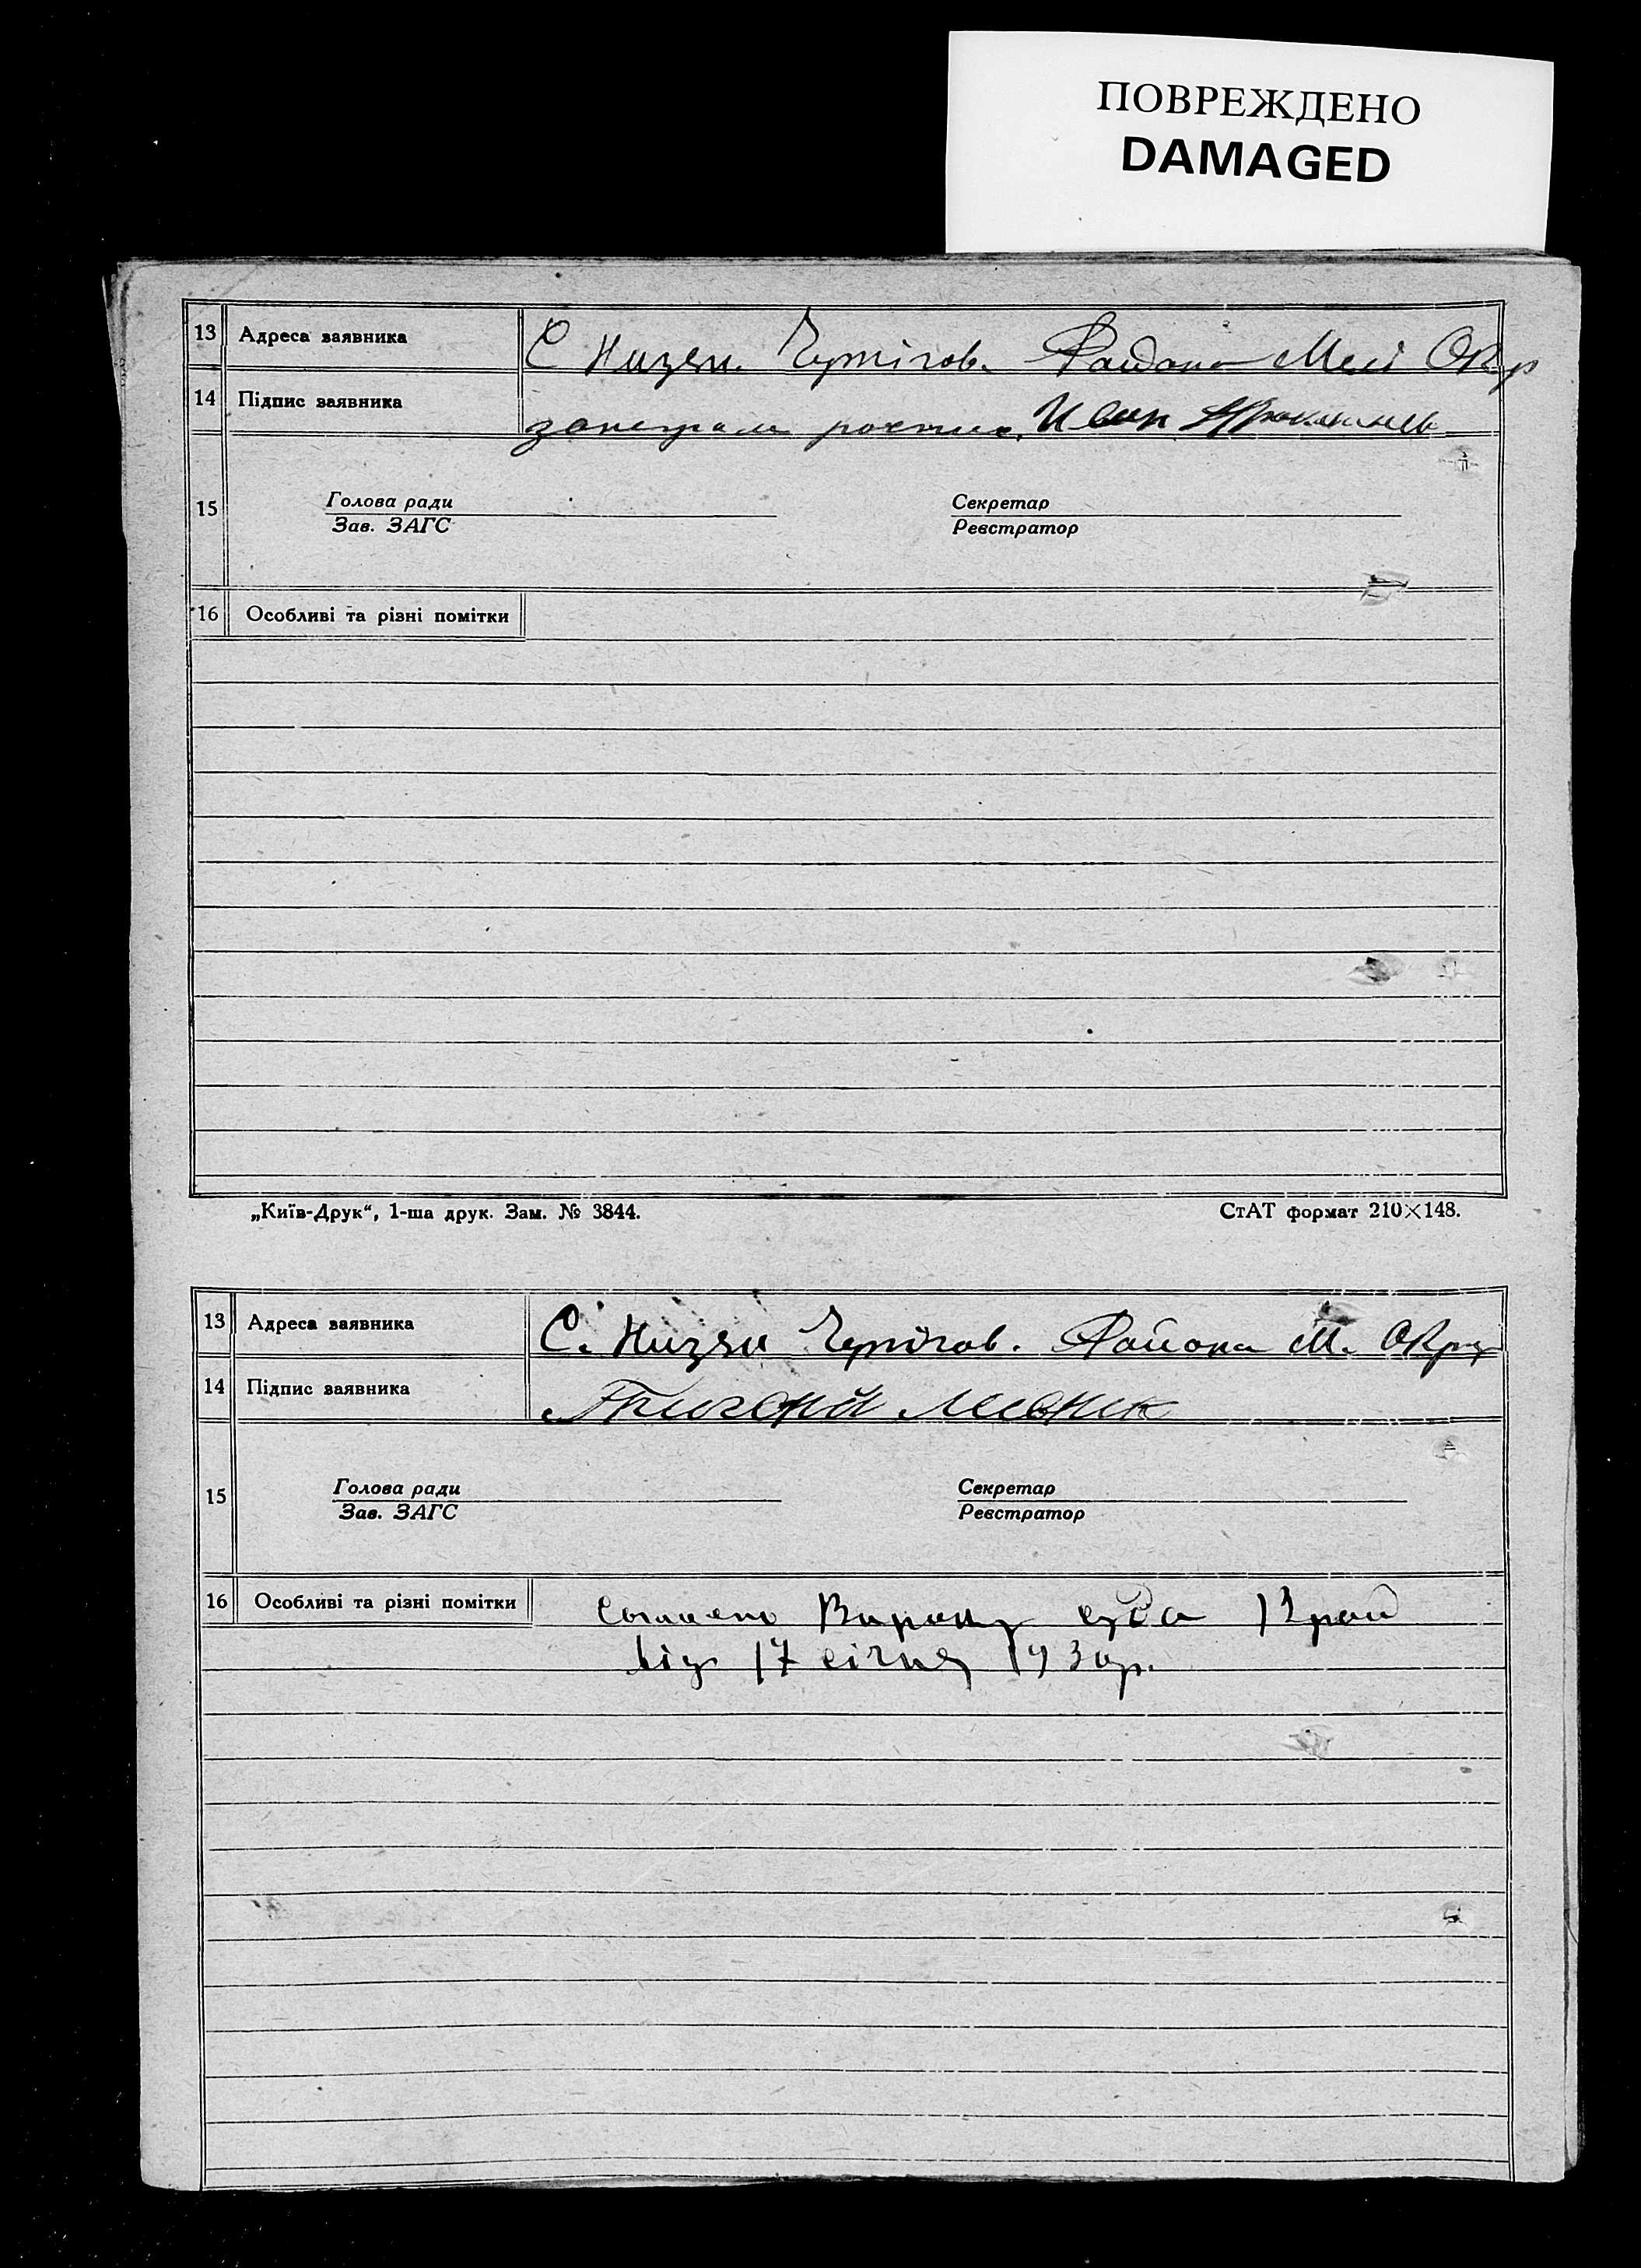 ПОВРЕЖДЕНО
DAMAGED
13 Адреса заявника С Низян. Чернігов. Району Мелі Окр
14 Підпис заявника Иван
15 Голова ради Секретар
Зав. ЗАГС Реєстратор
16 Особливі та різні помітки
„Київ-Друк“, 1-ша друк. Зам. № 3844. СтАТ формат 210×148.
13 Адреса заявника С. Низян Чернігов. Района М. Окру
14 Підпис заявника
15 Голова ради Секретар
Зав. ЗАГС Реєстратор
16 Особливі та різні помітки суда
від 17 січня 1930р.